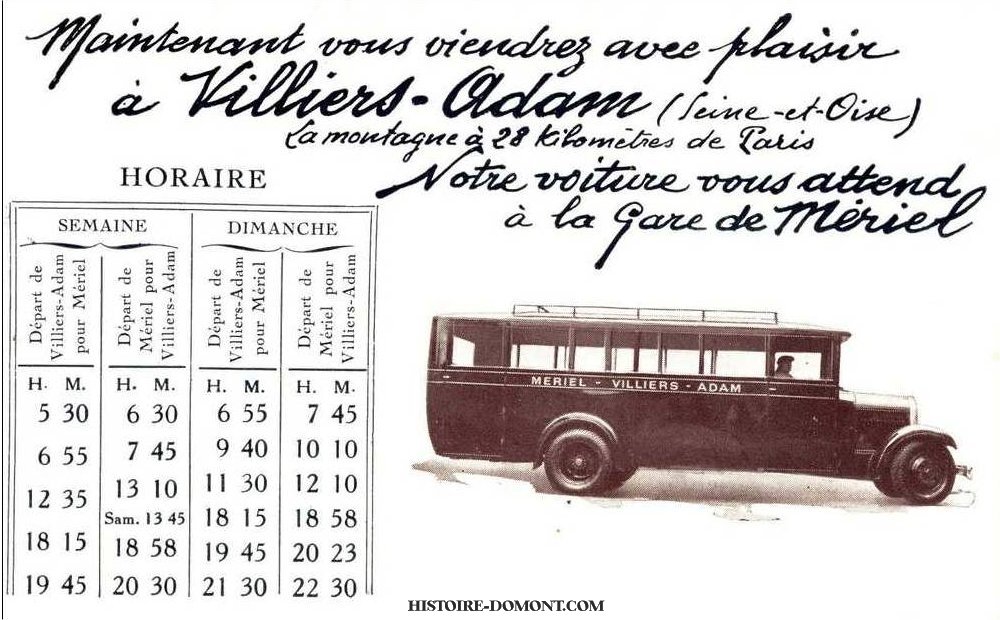 Maintenant vous viendrez avec plaisir
à Villiers-Adam (Seine-et-Oise)
La montagne à 28 kilomètres de Paris
Notre voiture vous attend
à la Gare de Mériel
HORAIRE
SEMAINE DIMANCHE
Départ de Villiers-Adam pour Mériel
Départ de Mériel pour Villiers-Adam
Départ de Villiers-Adam pour Mériel
Départ de Mériel pour Villiers-Adam
H. M. H. M. H. M. H. M.
5 30 6 30 6 55 7 45
6 55 7 45 9 40 10 10
12 35 13 10 11 30 12 10
Sam. 13 45
18 15 18 58 18 15 18 58
19 45 20 23
19 45 20 30 21 30 22 30
MERIEL - VILLIERS - ADAM
HISTOIRE-DOMONT.COM